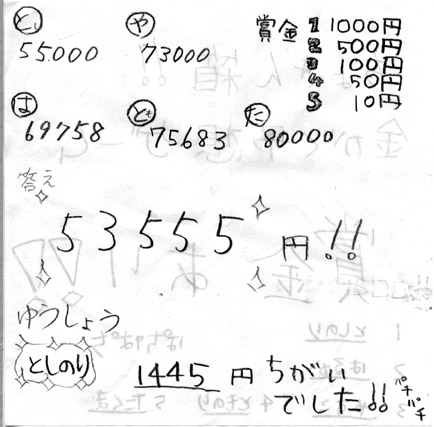 とし や 賞金 1 1000円
55000 73000 2 500円
3 100円
4 50円
5 10円
は とも た
69758 75683 80000
答え
53555円!!
ゆうしょう
としのり 1445円ちがい
でした!! パチパチ